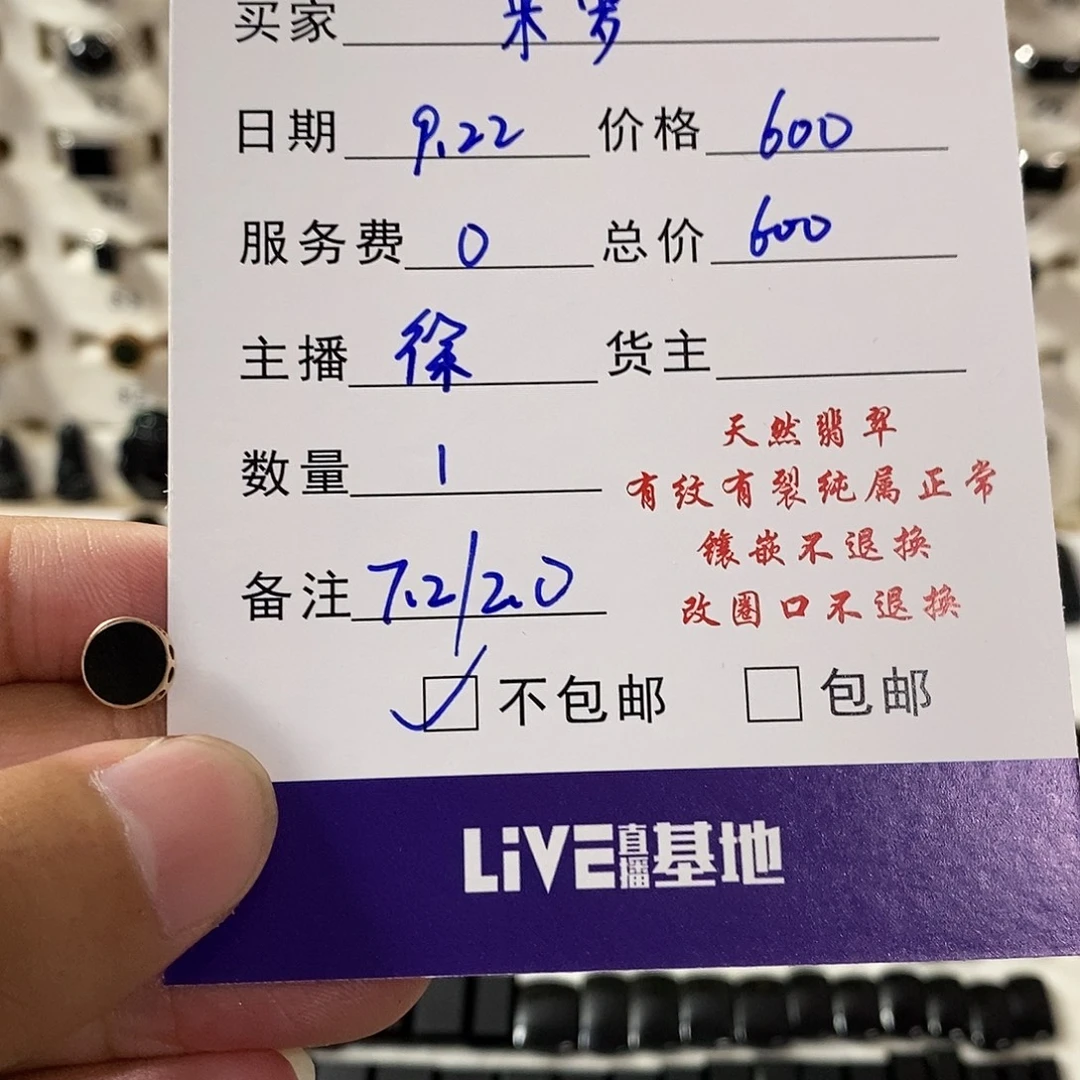 买家 米罗
日期 9.22 价格 600
服务费 0 总价 600
主播 徐 货主
数量 1
天然翡翠
有纹有裂纯属正常
镶嵌不退换
改圈口不退换
备注 7.2/2.0
✓ 不包邮 □ 包邮
LiVE直播基地